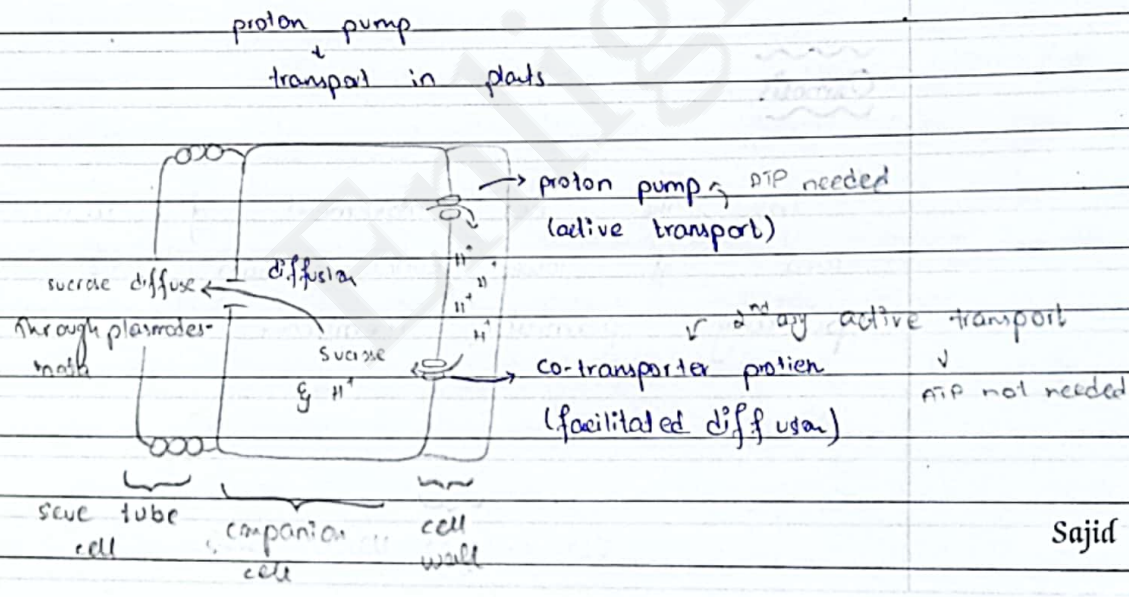 proton pump
↓
transport in plants
→ proton pump → ATP needed
(active transport)
H+
H+
H+
diffusion
sucrose diffuse
through plasmodes-
mata
Sucrose
& H+
2nd ary active transport
↓
ATP not needed
co-transporter protien
(facilitated diffusion)
sieve tube
cell
companion
cell
cell
wall
Sajid
Enlig